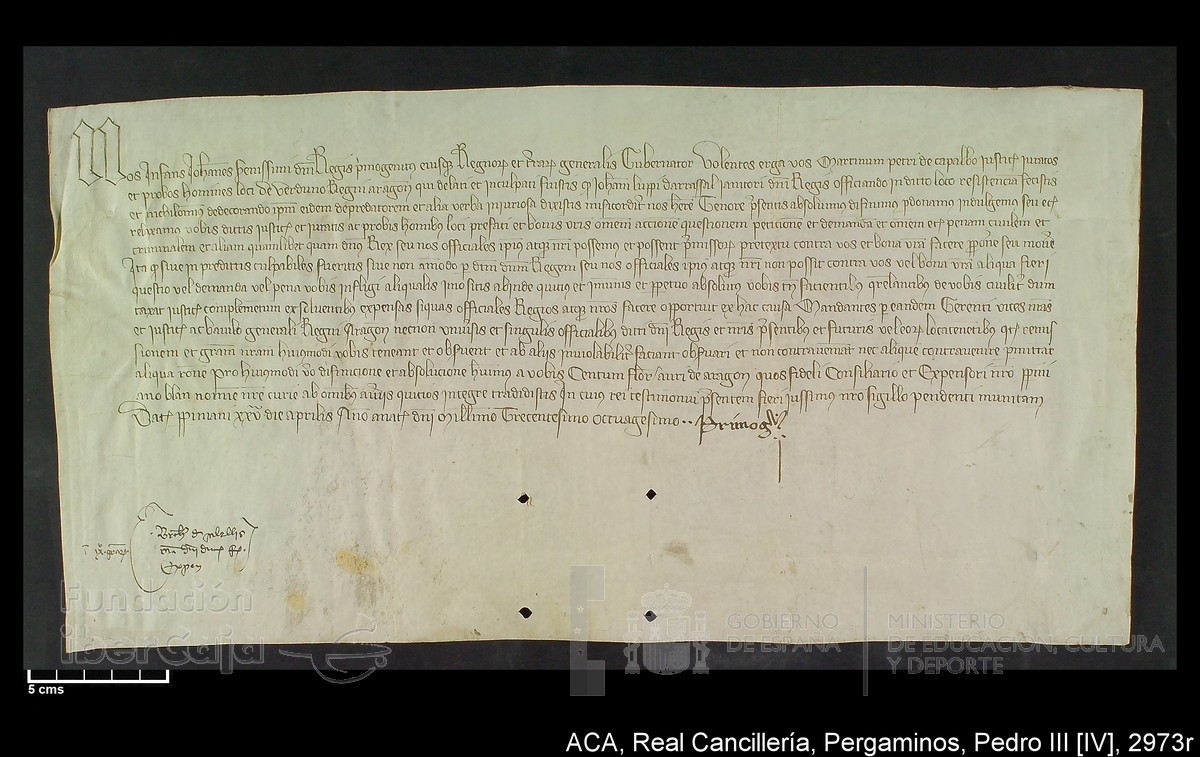 Nos Infans Johannes serenissimi dni Regis primogenitus eiusque Regnorum et terrarum generalis Gubernator Volentes erga vos Martinum petri de capalbo iusticiam iuratos
et probos homines loci de verduno Regni aragon qui delati et inculpati fuistis quod Johanni luppi dartassal ianitori dni Regis officiando in dicto loco resistencia fecistis
et ipsum eidem depredatorem et alia verba iniuriosa dixistis misericorditer nos habere Tenore presentis absolvimus diffinimus perdonamus indulgemus seu eciam
relaxamus vobis dictis iusticie et iuratis ac probis hominibus loci prefati et bonis vestris omnem accionem questionem peticionem et demandam et omnem eciam penam civilem et
criminalem et aliam quamlibet quam dnus Rex seu nos officiales ipsius atque nostri possemus et possent premissorum pretextu contra vos et bona vestra facere proponere seu movere
Ita quod sive in predictis culpabiles fueritis sive non amodo per dictum dnum Regem seu nos officiales ipsius atque nostri non possit contra vos vel bona vestra aliqua fieri
questio vel demanda vel pena vobis infligi aliqualis imo sitis abinde quitii et inmunes et perpetuo absoluti vobis tamen facientibus querelantibus de vobis civiliter dum
taxat iusticie complementum et solventibus expensis siquas officiales Regios atque nostros facere oportuit ex hac causa Mandantes per eandem Gerenti vices nostras
et iusticie ac baiulo generali Regni Aragon necnon universis et singulis officialibus dicti dni Regis et nostris presentibus et futuris vel eorum locatenentibus quod remis
sionem et graciam nostram huiusmodi vobis teneant et observent et ab aliis inviolabiliter faciant observari et non contraveniant nec aliquem contravenire permittant
aliqua racione Pro huiusmodi vero diffinicione et absolucione habuimus a vobis Centum flor auri de aragon quos fideli Consiliario et Expensori nostro perpini
ano blan nomine nostre curie ab omnibus aliis quitios integre tradidistis In cuius rei testimonium presentem fieri iussimus nostro sigillo pendenti munitam
Dat perpiniani xxv die aprilis Anno a nat dni Millesimo Trecentesimo Octuagesimo
Primogs
Expen
Fundación
iberCaja
GOBIERNO
DE ESPAÑA
MINISTERIO
DE EDUCACIÓN, CULTURA
Y DEPORTE
5 cms
ACA, Real Cancillería, Pergaminos, Pedro III [IV], 2973r